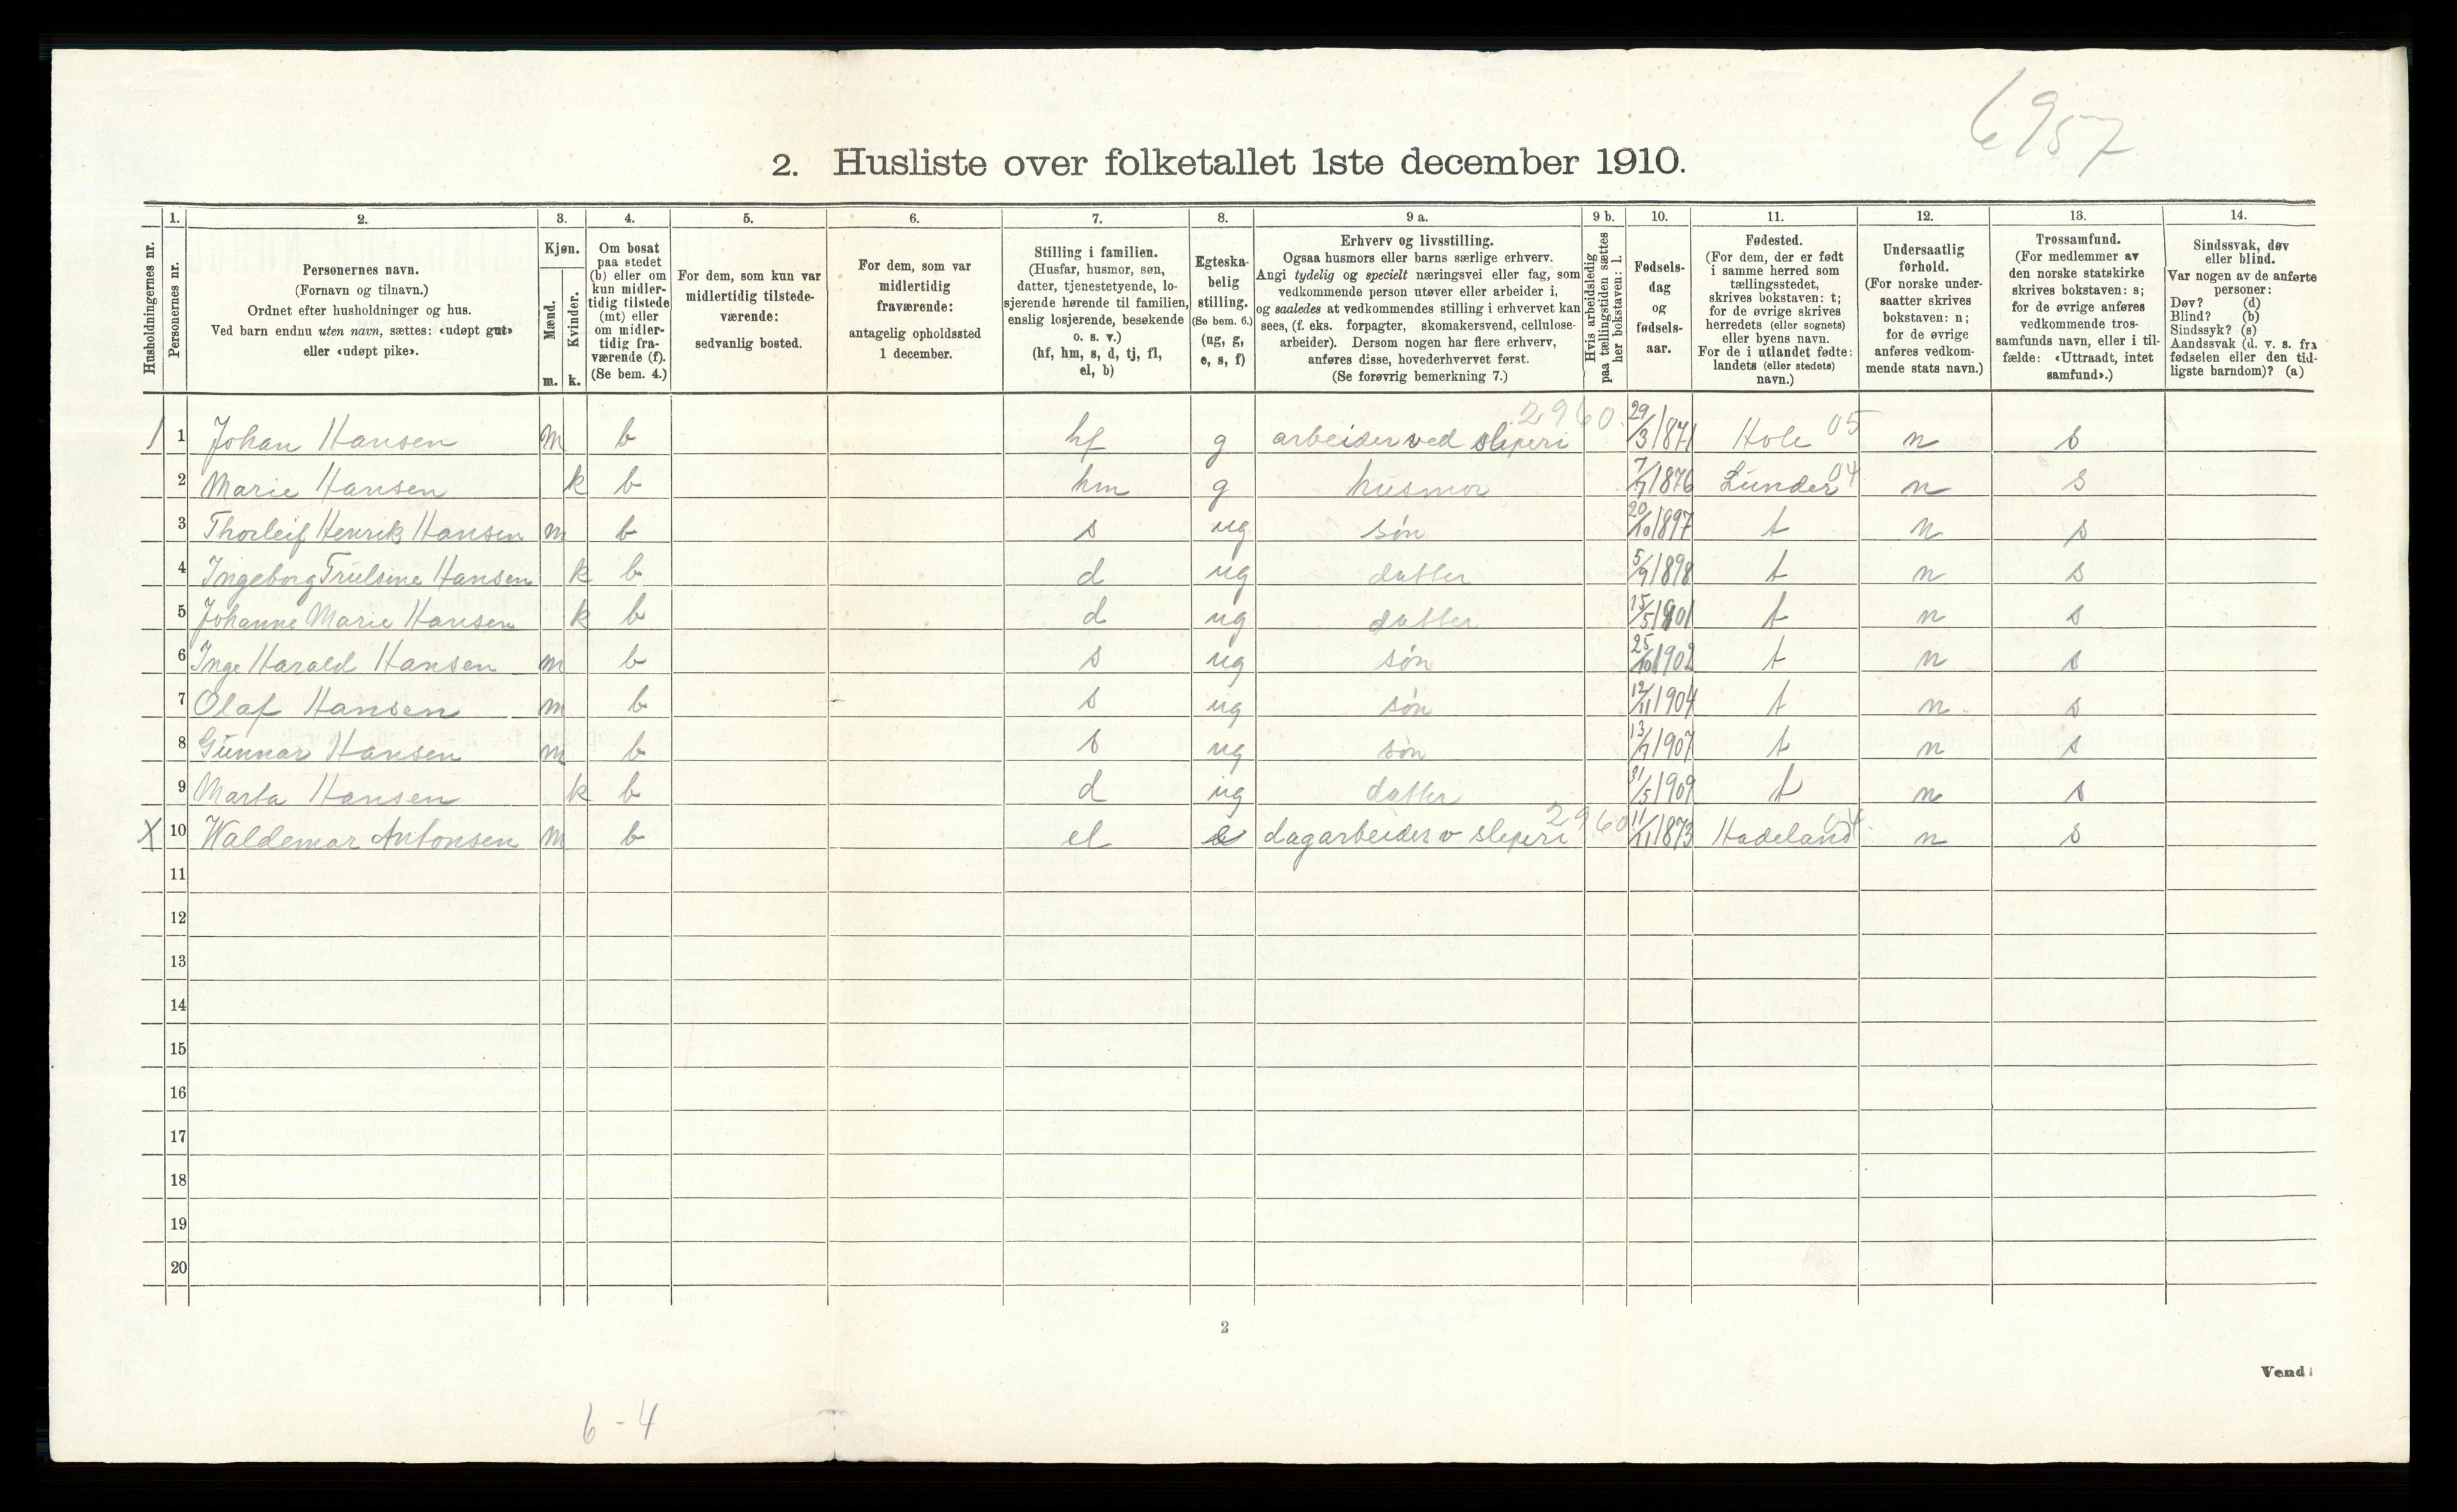 6957
2. Husliste over folketallet 1ste december 1910.
Husholdningernes nr.
1.
Personernes nr.
2.
Personernes navn.
(Fornavn og tilnavn.)
Ordnet efter husholdninger og hus.
Ved barn endnu uten navn, sættes: «udøpt gut»
eller «udøpt pike».
3.
Kjøn.
Mænd.
Kvinder.
m. k.
4.
Om bosat
paa stedet
(b) eller om
kun midler-
tidig tilstede
(mt) eller
om midler-
tidig fra-
værende (f).
(Se bem. 4.)
5.
For dem, som kun var
midlertidig tilstede-
værende:
sedvanlig bosted.
6.
For dem, som var
midlertidig
fraværende:
antagelig opholdssted
1 december.
7.
Stilling i familien.
(Husfar, husmor, søn,
datter, tjenestetyende, lo-
sjerende hørende til familien,
enslig losjerende, besøkende
o. s. v.)
(hf, hm, s, d, tj, fl,
el, b)
8.
Egteska-
belig
stilling.
(Se bem. 6.)
(ug, g,
e, s, f)
9 a.
Erhverv og livsstilling.
Ogsaa husmors eller barns særlige erhverv.
Angi tydelig og specielt næringsvei eller fag, som
vedkommende person utøver eller arbeider i,
og saaledes at vedkommendes stilling i erhvervet kan
sees, (f. eks. forpagter, skomakersvend, cellulose-
arbeider). Dersom nogen har flere erhverv,
anføres disse, hovederhvervet først.
(Se forøvrig bemerkning 7.)
9 b.
Hvis arbeidsledig
paa tællingstiden sættes
her bokstaven: l.
10.
Fødsels-
dag
og
fødsels-
aar.
11.
Fødested.
(For dem, der er født
i samme herred som
tællingsstedet,
skrives bokstaven: t;
for de øvrige skrives
herredets (eller sognets)
eller byens navn.
For de i utlandet fødte:
landets (eller stedets)
navn.)
12.
Undersaatlig
forhold.
(For norske under-
saatter skrives
bokstaven: n;
for de øvrige
anføres vedkom-
mende stats navn.)
13.
Trossamfund.
(For medlemmer av
den norske statskirke
skrives bokstaven: s;
for de øvrige anføres
vedkommende tros-
samfunds navn, eller i til-
fælde: «Uttraadt, intet
samfund».)
14.
Sindssvak, døv
eller blind.
Var nogen av de anførte
personer:
Døv? (d)
Blind? (b)
Sindssyk? (s)
Aandssvak (d. v. s. fra
fødselen eller den tid-
ligste barndom)? (a)
1 1 Johan Hansen m b hf g arbeider ved sliperi 2960 29/3 1871 Hole 05 n s
2 Marie Hansen k b hm g husmor 1876 Lunder 04 n s
3 Thorleif Henrik Hansen m b s ug søn 20/10 1897 t n s
4 Ingeborg Trulsine Hansen k b d ug datter 5/9 1898 t n s
5 Johanne Marie Hansen k b d ug datter 15/5 1901 t n s
6 Inge Harald Hansen m b s ug søn 25/10 1902 t n s
7 Olaf Hansen m b s ug søn 12/11 1904 t n s
8 Gunnar Hansen m b s ug søn 1907 t n s
9 Marta Hansen k b d ug datter 31/5 1909 t n s
X 10 Waldemar Antonsen m b el dagarbeider v sliperi 2960 11/11 1873 Hadeland 04 n s
11
12
13
14
15
16
17
18
19
20
3
Vend!
6-4